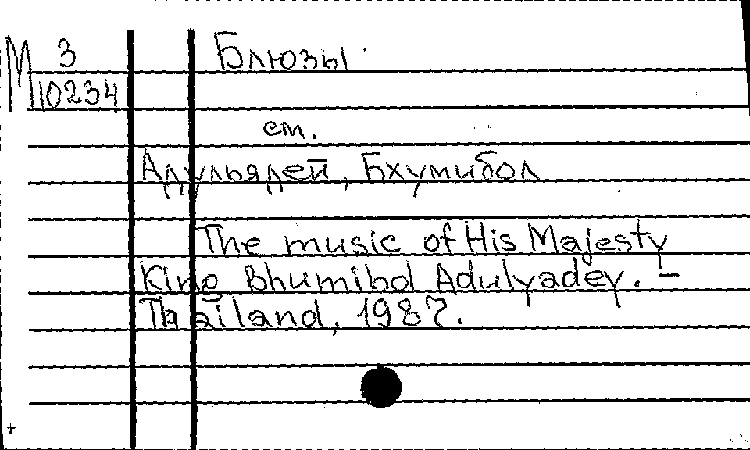 М 3
10234
Блюзы
см.
Адульядей, Бхумибол
The music of His Majesty
King Bhumibol Adulyadey. –
Thailand, 1987.